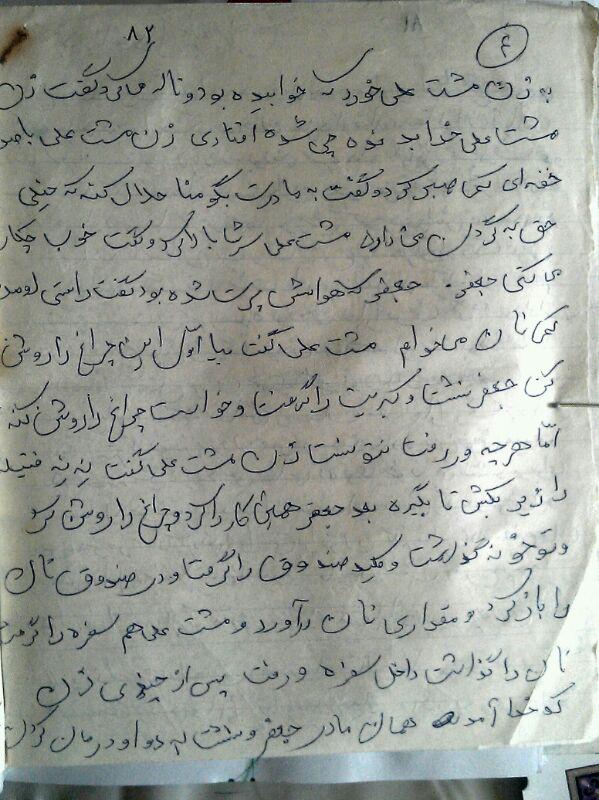 ۸۲
۴
به زن مشت علی خورد که خوابیده بود و ناله می‌کرد گفت زن
مشت علی خدا بد نده چی شده افتادی زن مشت علی با صد
خفه‌ای کمی صبر کرد و گفت به مادرت بگو منا حلال کنه که خیلی
حق به گردن من داره مشت علی سرشا بالا کرد و گفت خوب چکار
می کنی جعفر. جعفر که هواسش پرت شده بود گفت راستی اومد
کمی نان می‌خوام مشت علی گفت بیا اوّل این چراغ را روشن
کن جعفر نشت و کبریت را گرفت و خواست چراغ را روشن کنه
امّا هرچه ور رفت نتونست زن مشت علی گفت نه نه فتیله
را زیر بکش تا بگیره بعد جعفر همین کار را کرد و چراغ را روشن کرد
و تو خونه گذاشت و کلید صندوق را گرفت و در صندوق نان
را باز کرد و مقداری نان درآورد و مشت علی هم سفره را گرفت
نان را گذاشت داخل سفره و رفت پس از چندی زن
کدخدا آمد همان مادر جعفر و مشت به دوا و درمان کردن